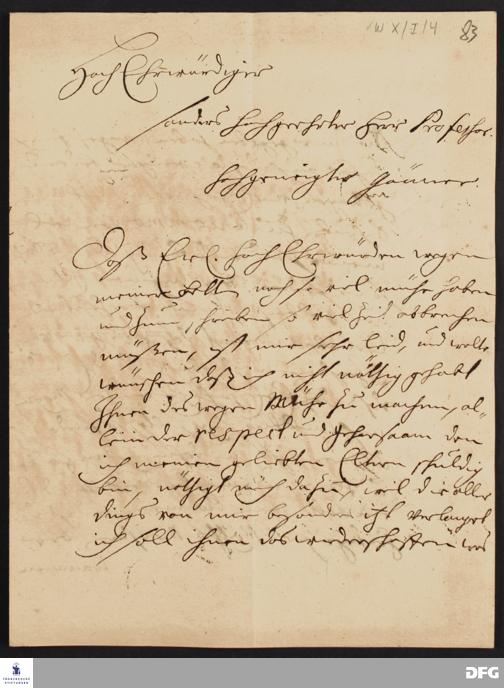 W X/I/4 83
Hoch Ehrwürdiger
sonders hochgeehrter Herr Professor.
Hochgeneigter Gönner.
Daß Ew. Hoch Ehrwürden wegen
meiner noch so viel mühe haben
und zum schreiben so viel Zeit abbrechen
müßen, ist mir sehr leid, und wolte
wünschen daß ich nicht nöthig gehabt
Ihnen deswegen Mühe zu machen, al-
lein der respect und gehorsam den
ich meinen geliebten Eltern schuldig
bin, nöthigt mich dazu, weil die aller
dings von mir verlanget
ich soll ihnen das was
FRANCKESCHE
STIFTUNGEN
DFG